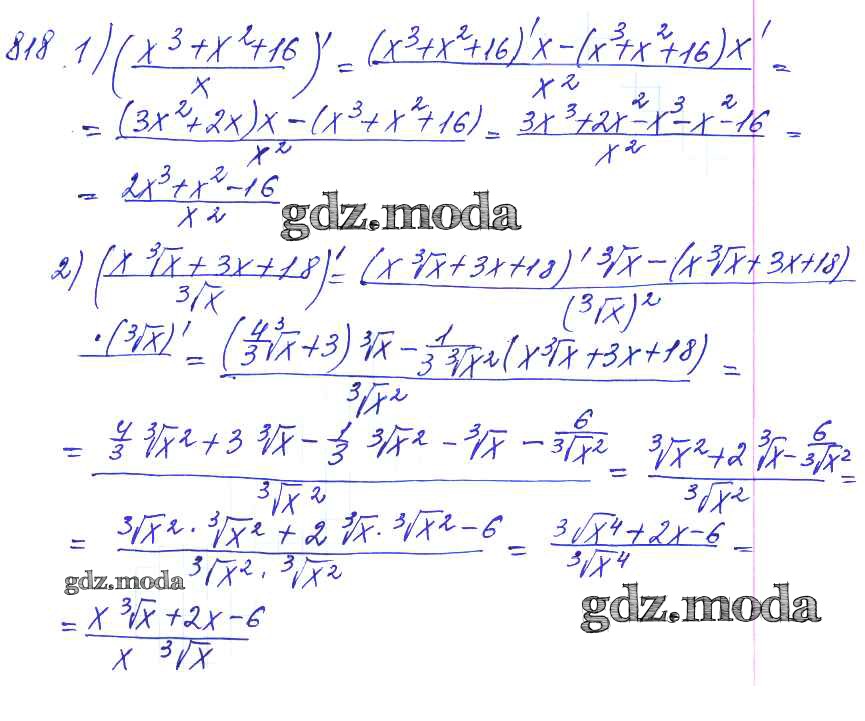 818 1) ((x³+x²+16)/x)' = ((x³+x²+16)'x-(x³+x²+16)x')/x² =
= ((3x²+2x)x-(x³+x²+16))/x² = (3x³+2x²-x³-x²-16)/x² =
= (2x³+x²-16)/x²
gdz.moda
2) ((x∛x+3x+18)/∛x)' = ((x∛x+3x+18)'∛x-(x∛x+3x+18)/(∛x)²
·(∛x)' = ((4/3 ∛x+3)∛x - 1/(3∛x²) (x∛x+3x+18))/∛x² =
= (4/3 ∛x²+3∛x - 1/3 ∛x² - ∛x - 6/∛x²)/∛x² = (∛x²+2∛x - 6/∛x²)/∛x² =
= (∛x²·∛x²+2∛x·∛x²-6)/(∛x²·∛x²) = (∛x⁴+2x-6)/∛x⁴ =
gdz.moda
gdz.moda
= (x∛x+2x-6)/(x∛x)